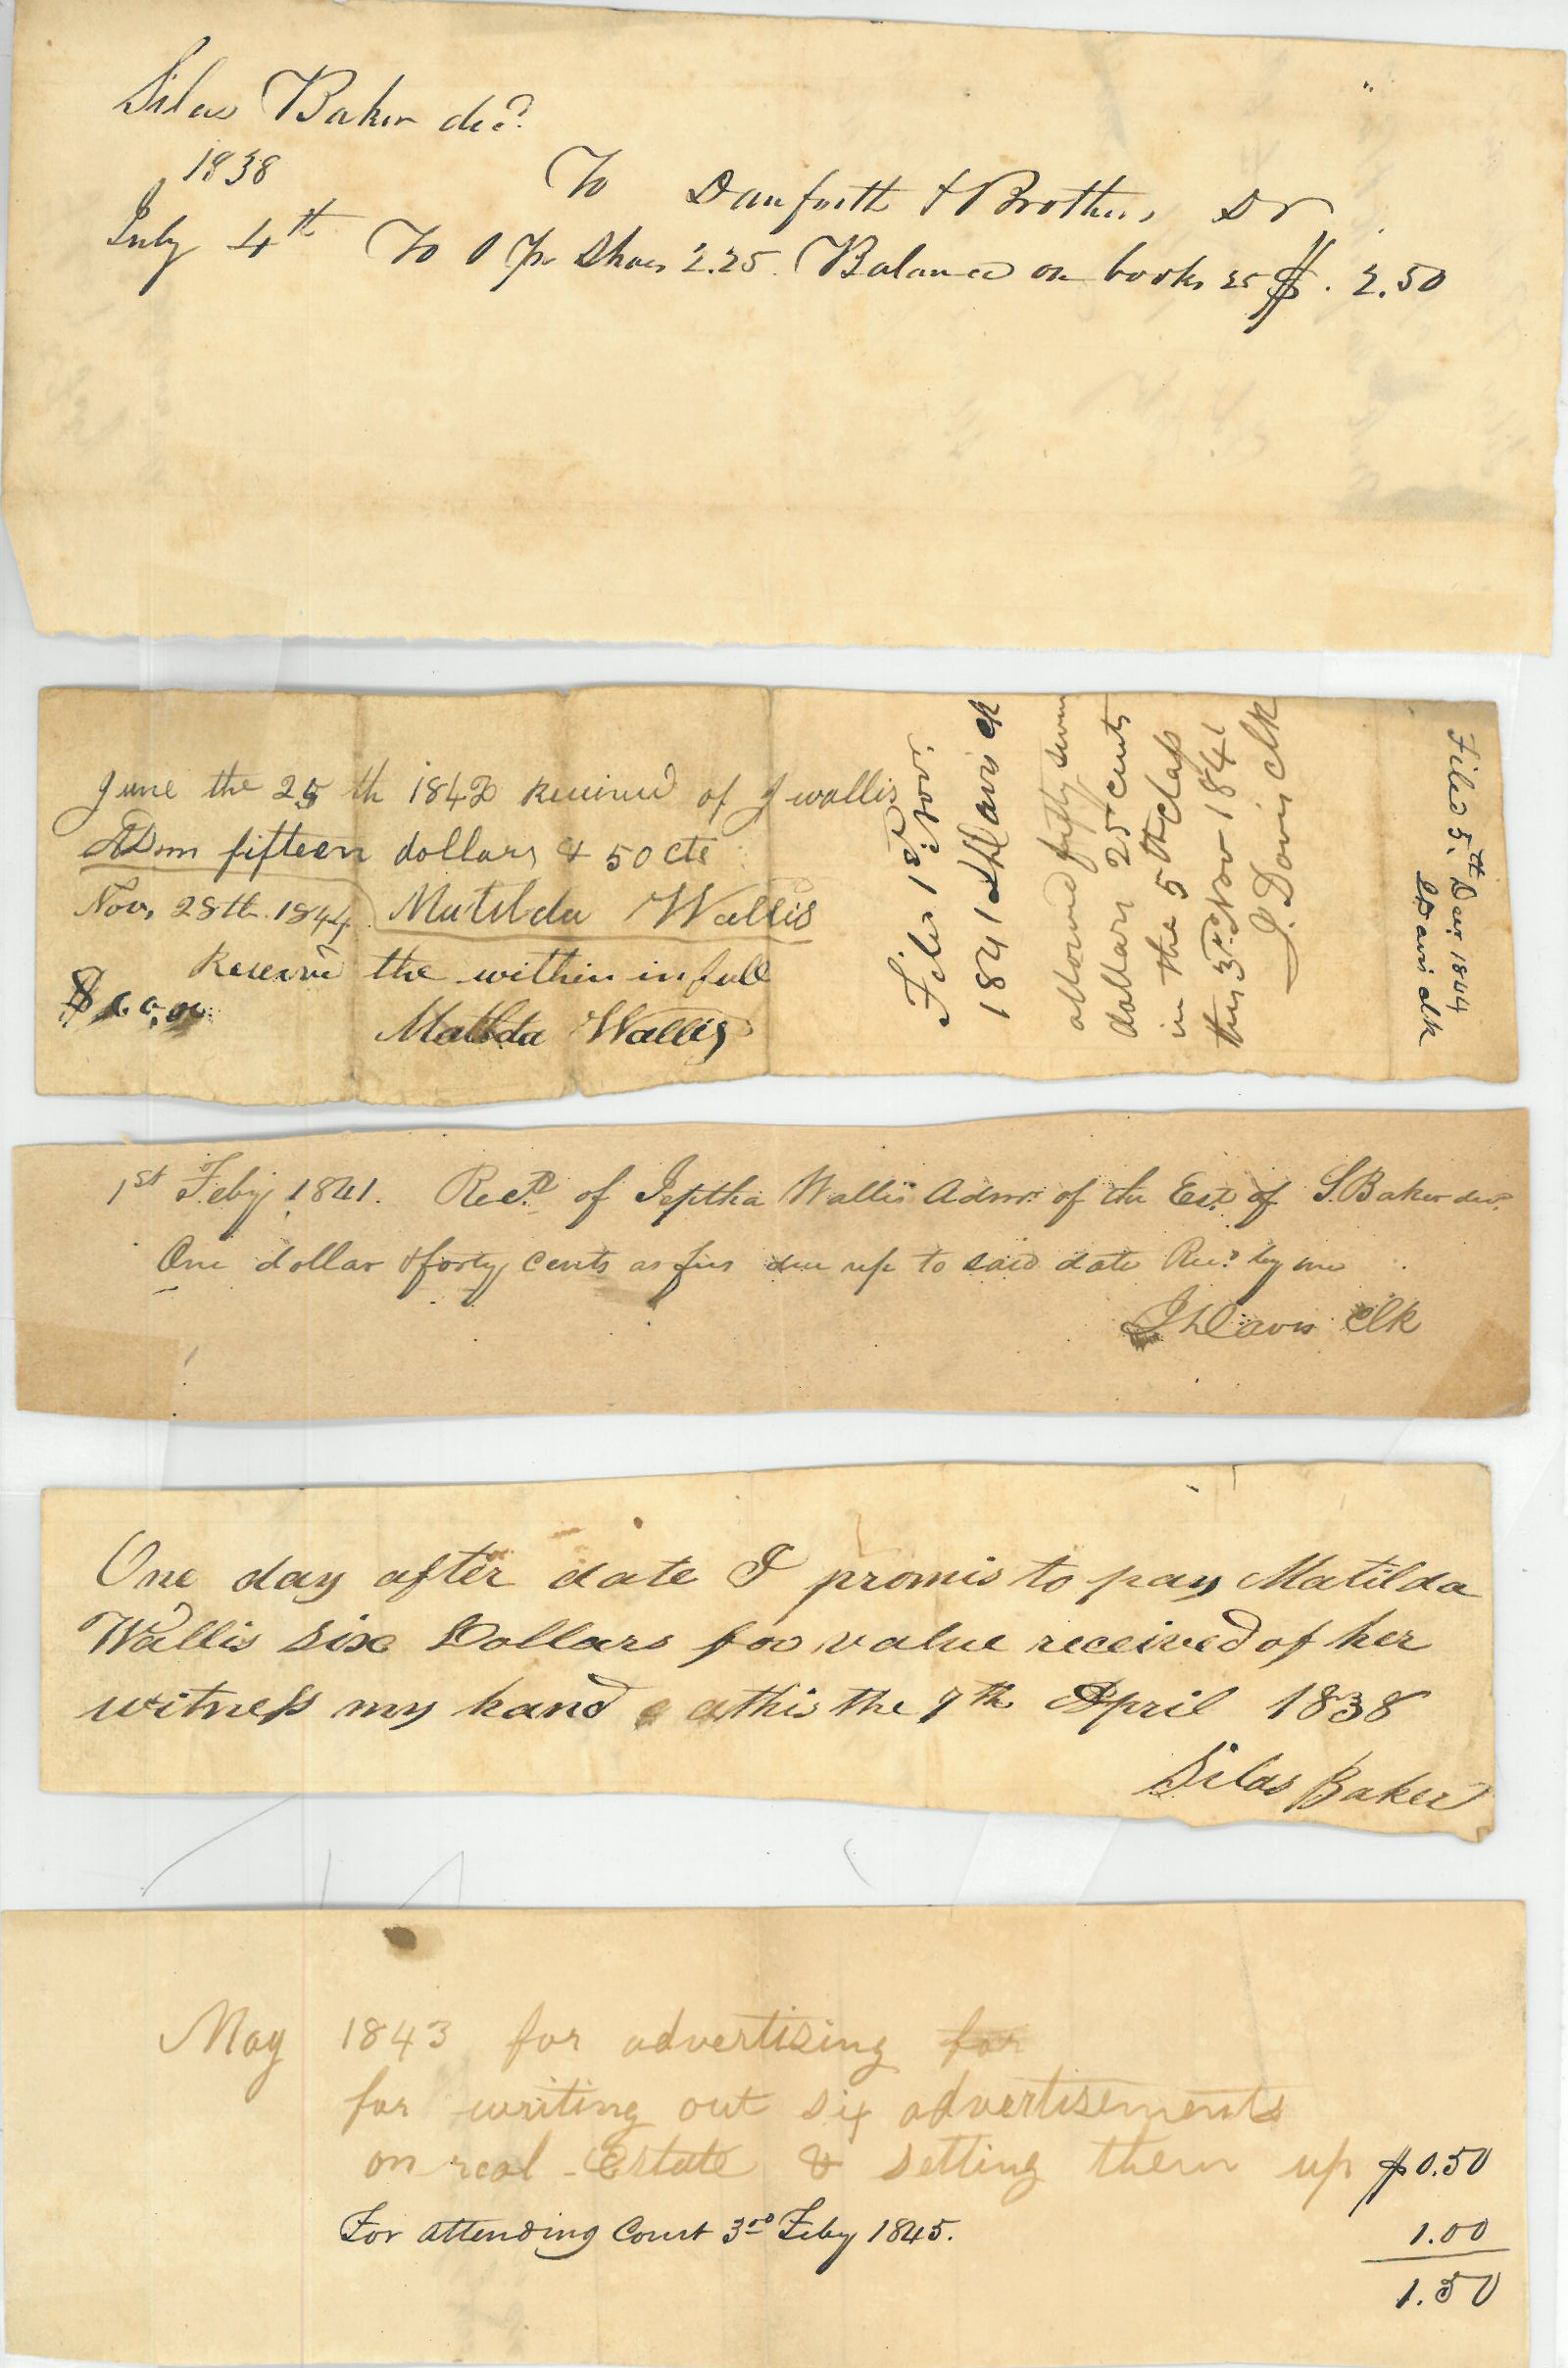 Silas Baker decd.
1838
To Danforth & Brothers Dr
July 4th To 1 Pr Shoes 2.25. Balance on books 25 $. 2.50
June the 25 th 1842 received of J wallis
ADm fifteen dollars & 50 cts
Matilda Wallis
Nov, 28th. 1844
Receivd the within in full
Matilda Wallis
Filed 1st Nov.
1841 J H Davis clk
allowed fifty seven
dollars 25 cents
in the 5th class
this 3rd Nov 1841
J. Davis clk
Filed 5th Dec, 1844
Davis clk
1st Feby, 1841. Recd. of Jeptha Wallis Admr. of the Est. of S. Baker decd.
One dollar & forty cents as fees due up to said date Recd by me
J H Davis Clk
One day after date I promis to pay Matilda
Wallis Six Dollars for value received of her
witness my hand this the 7th April 1838
Silas Baker
May 1843 for advertising for
for writing out six advertisements
on real Estate & setting them up $0.50
For attending Court 3rd Feby 1845. 1.00
1.50